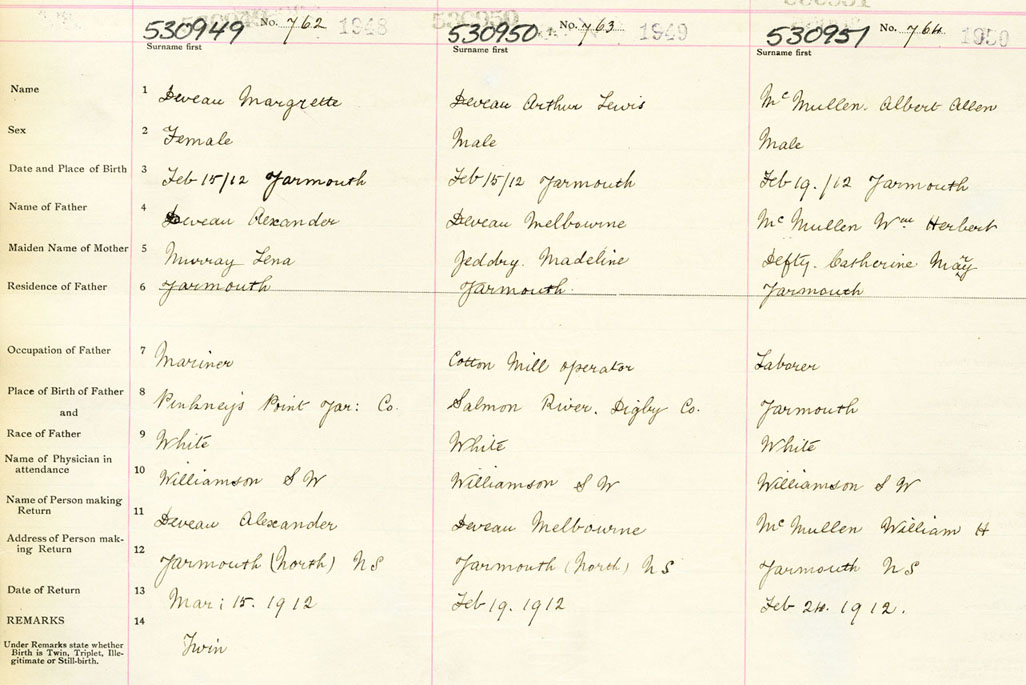 530949 No. 762 1948 530950 No. 763 1949 530951 No. 764 1950
Surname first Surname first Surname first
Name 1 Deveau Margrette Deveau Arthur Lewis Mc Mullen. Albert Allen
Sex 2 Female Male Male
Date and Place of Birth 3 Feb 15/12 Yarmouth Feb 15/12 Yarmouth Feb 19./12 Yarmouth
Name of Father 4 Deveau Alexander Deveau Melbourne Mc Mullen Wm Herbert
Maiden Name of Mother 5 Murray Lena Jeddry. Madeline Defty. Catherine May
Residence of Father 6 Yarmouth Yarmouth. Yarmouth
Occupation of Father 7 Mariner Cotton Mill operator Laborer
Place of Birth of Father 8 Pinkney's Point Yar: Co. Salmon River. Digby Co. Yarmouth
and
Race of Father 9 White White White
Name of Physician in
attendance 10 Williamson S W Williamson S W Williamson S W
Name of Person making
Return 11 Deveau Alexander Deveau Melbourne Mc Mullen William H
Address of Person mak-
ing Return 12 Yarmouth (North) N S Yarmouth (North) N S Yarmouth N S
Date of Return 13 Mar: 15. 1912 Feb 19. 1912 Feb 24. 1912.
REMARKS 14
Under Remarks state whether
Birth is Twin, Triplet, Ille-
gitimate or Still-birth.
Twin